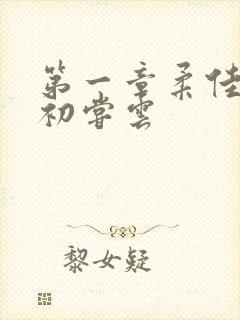 第一章柔佳
初尝云
黎女疑